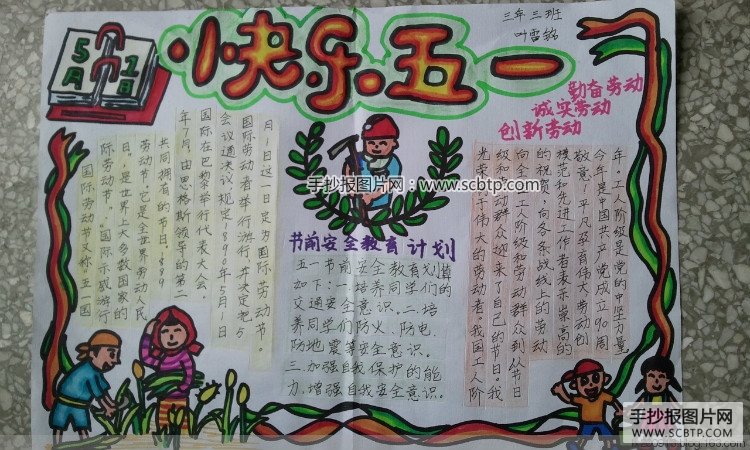 5月1日
快乐五一
三年三班
叶雪铭
勤奋劳动
诚实劳动
创新劳动
国际劳动节又称五一国
际劳动节、“国际示威游行
日。是世界上大多数国家的
劳动节。它是全世界劳动人民
共同拥有的节日。1889
年7月,由恩格斯领导的第二
国际在巴黎举行代表大会。
会议通过决议,规定1890年5月1日
国际劳动者举行游行,并决定把5
月1日这一日定为国际劳动节。
手抄报图片网:www.scbtp.com
节前安全教育计划
五一节前安全教育划算
如下:一.培养同学们的
交通安全意识。二.培
养同学们防火、防电、
防地震等安全意识。
三.加强自我保护的能
力,增强自我安全意识。
光荣归于伟大的劳动者。我国工人阶
级和劳动群众迎来了自己的节日。我
向全国工人阶级和劳动群众到从节日
的祝贺,向各条战线上的劳动
模范和先进工作者表示崇高的
敬意!平凡孕育伟大劳动创
今年是中国共产党成立90周
年。工人阶级是党的中坚力量
手抄报图片网
WWW.SCBTP.COM